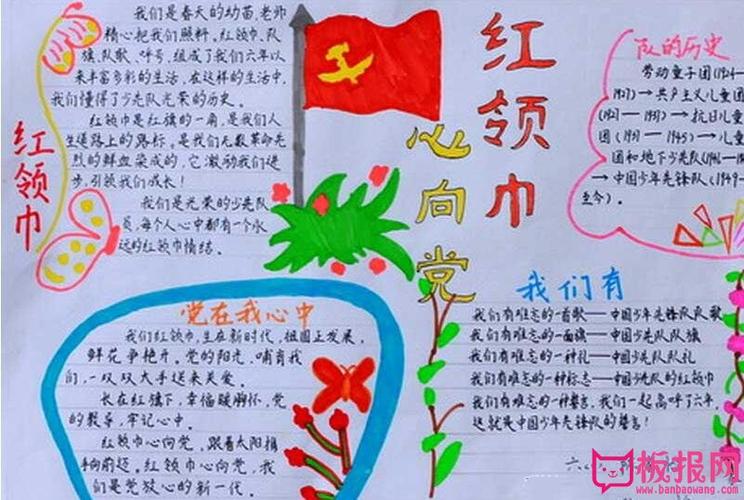 红领巾
我们是春天的幼苗,老师
精心把我们照料。红领巾、队
旗、队歌、呼号,组成了我们六年以
来丰富多彩的生活,在这样的生活中,
我们懂得了少先队光荣的历史。
红领巾是红旗的一角,是我们人
生道路上的路标。是我们无数革命先
烈的鲜血染成的,它激励我们进
步,引领我们成长!
我们是光荣的少先队
员,每个人心中都有一个永
远的红领巾情结。
红领巾
心向党
队的历史
劳动童子团(1924—
1927)→共产主义儿童团
(1927—1931)→抗日儿童
团(1931—1945)→儿童
团和地下少先队(1946—19
→中国少年先锋队(1949—
至今)。
党在我心中
我们红领巾,生在新时代,祖国正发展,
鲜花争艳开。党的阳光,哺育我
们,一双双大手送来关爱。
长在红旗下,幸福暖胸怀,党
的教导,牢记心中。
红领巾心向党,跟着太阳指
向前迈。红领巾心向党,我
们是党放心的新一代。
我们有
我们有难忘的一首歌——中国少年先锋队队歌
我们有难忘的一面旗——中国少先队队旗
我们有难忘的一种礼——中国少先队队礼
我们有难忘的一种标志——中国少先队的红领巾
我们有难忘的一种誓言,我们一起高呼了六年,
这就是中国少年先锋队的誓言!
板报网
www.banbaowang.com